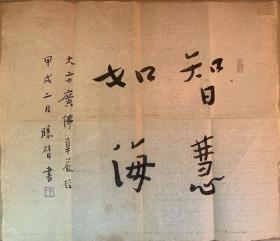 智慧
如海
大方廣佛華嚴經
甲戌二月 勝智書